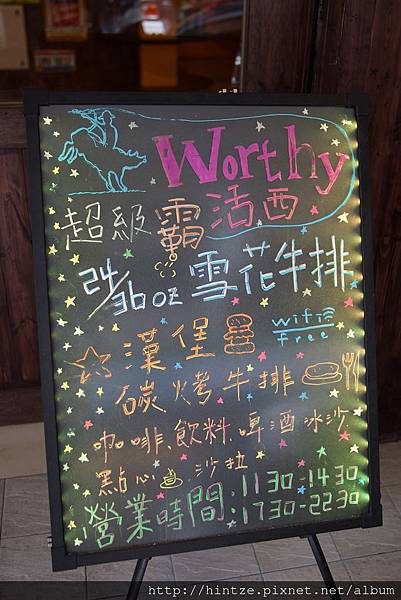 Worthy
活西
超級霸
24/36oz 雪花牛排
漢堡
wifi
free
碳烤牛排
咖啡、飲料、啤酒、冰沙
點心 沙拉
營業時間:1130-1430
1730-2230
http://hintze.pixnet.net/album